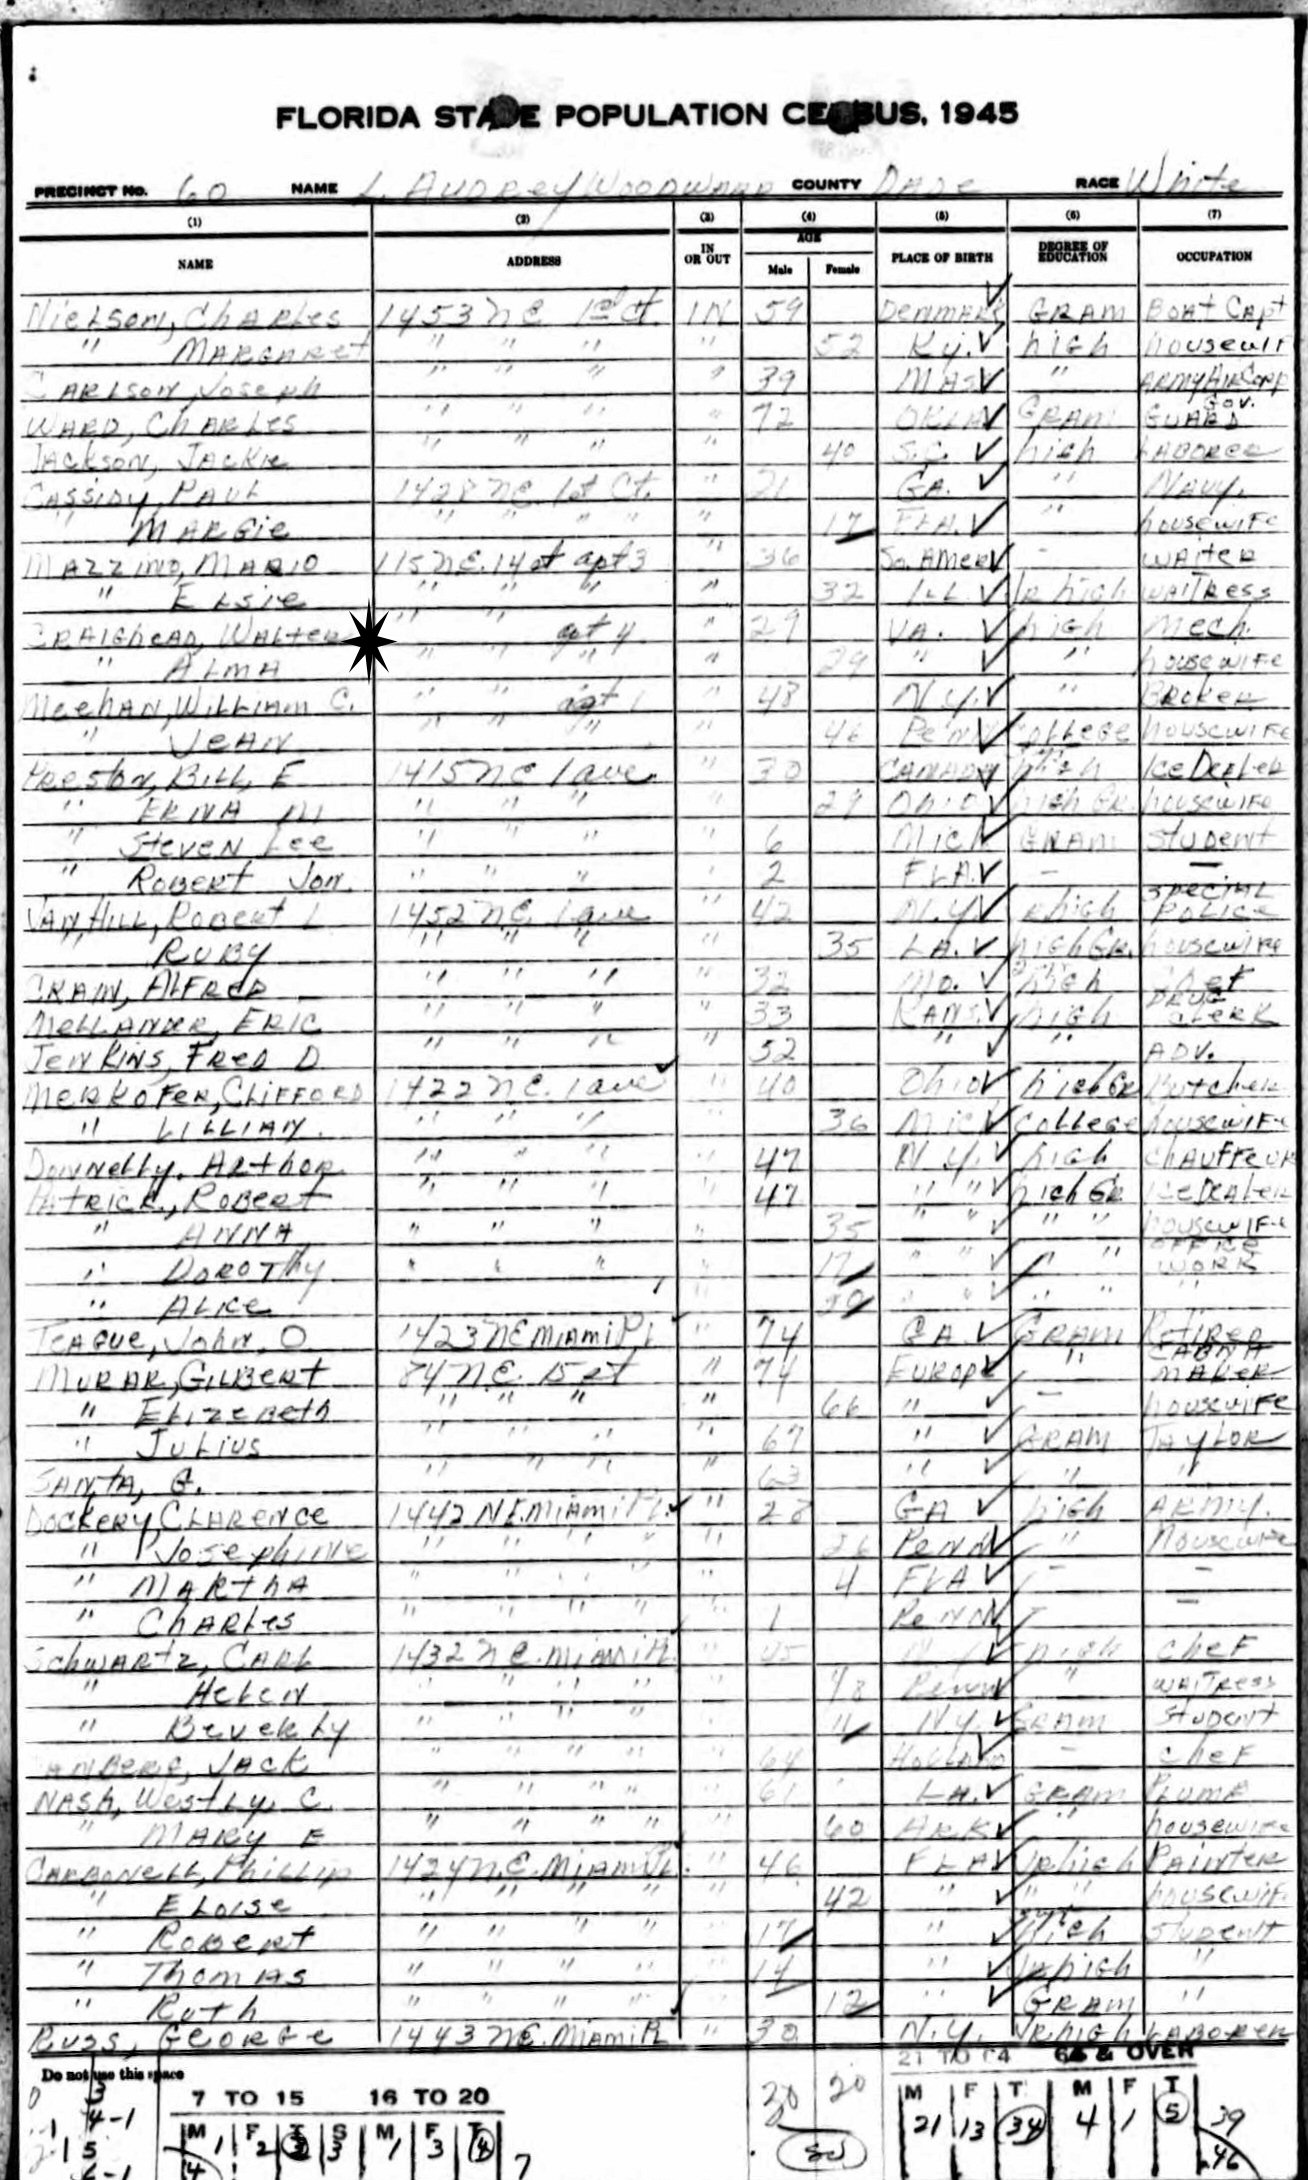 FLORIDA STATE POPULATION CENSUS, 1945
PRECINCT No. 60 NAME L. AUDREY WOODWARD COUNTY DADE RACE White
(1) (2) (3) (4) (5) (6) (7)
NAME ADDRESS IN OR OUT AGE Male Female PLACE OF BIRTH DEGREE OF EDUCATION OCCUPATION
Nielson, Charles 1453 NE 1st Ct. IN 59 Denmark GRAM Boat Capt
" MARGARET " " " " 52 Ky. high housewif
CARLSON, Joseph " " " " 39 MAS " ARMY Air Corp
WARD, Charles " " " " 72 OKLA GRAM Gov. GUARD
JACKSON, JACKIE " " " " 40 S.C. high LABORER
CASSIDY, PAUL 1428 NE. 1st Ct. " 21 GA. " NAVY.
" MARGIE " " " " 17 FLA. " housewife
MAZZINO, MARIO 115 NE. 14 st apt 3 " 36 So. AMER - WAITER
" ELSIE " " " " 32 ILL. Jr high WAITRESS
CRAIGHEAD, WALTER " " apt 4 " 29 VA. high Mech.
" ALMA " " " " 29 " " housewife
MeehAN, WILLIAM C. " " apt 1 " 48 N.Y. " Broker
" JEAN " " " " 46 PENN College housewife
Preston, Bill, E 1415 NE 1 ave. " 30 CANADA high Ice Dealer
" ERNA M " " " " 29 Ohio high GR. housewife
" Steven Lee " " " " 6 Mich GRAM Student
" Robert Jon. " " " " 2 FLA. - -
VAN HILL, Robert L 1452 NE. 1 ave " 42 N.Y. high SPECIAL POLICE
RUBY " " " " 35 LA. high GR. housewife
CRAIN, ALFRED " " " " 32 MO. high Chef
MELLANDER, ERIC " " " " 33 KANS. high DRUG CLERK
JENKINS, FRED D " " " " 52 " " ADV.
MERKOFER, CLIFFORD 1422 NE. 1 ave " 40 Ohio high GR Butcher
" LILLIAN. " " " " 36 Mich College housewife
Donnelly, Arthor " " " " 47 N.Y. high Chauffeur
PATRICK, ROBERT " " " " 47 " " high GR Ice Dealer
" ANNA " " " " 35 " " " " housewife
" DOROTHY " " " " 17 " " " " OFFICE WORK
" ALICE " " 20 " " " " "
TEAGUE, John. O 1423 NE MIAMI Pl. " 74 GA. GRAM Retired
MURAR, GILBERT 84 NE. 15 st " 74 EUROPE " CABNT MAKER
" ELIZEBETH " " " " 66 " - housewife
" JULIUS " " " " 67 " GRAM TAYLOR
SANTA, G. " " " " 63 " " "
DOCKERY, CLARENCE 1442 NE. MIAMI Pl. " 28 GA high ARMY.
" Josephine " " " " " 26 PENN " Housewife
" MARTHA " " " " " 4 FLA - -
" CHARLES " " " " " 1 PENN - -
Schwartz, CARL 1432 NE. Miami Pl. " 45 N.Y. high Chef
" HELEN " " " " " 48 PENN " WAITRESS
" BEVERLY " " " " " 11 N.Y. GRAM Student
JACK " " " " 64 HOLLAND - Chef
NASH, WESTLY, C. " " " " " 61 LA. GRAM PLUMB
" MARY E " " " " " 60 ARK " housewife
CARBONELL, Phillip 1424 N.E. Miami Pl. " 46 FLA Jr high PAINTER
" ELOISE " " " " " 42 " " " housewif.
" ROBERT " " " " " 17 " high student
" Thomas " " " " " 14 " Jr high "
" Ruth " " " " " 12 " GRAM "
RUSS, GEORGE 1443 NE. Miami Pl " 30 N.Y. Jr high LABORER
Do not use this space
7 TO 15 16 TO 20 21 TO 64 65 & OVER
M F T S M F T M F T M F T
1 2 3 3 1 3 4 7 30 20 50 21 13 34 4 1 5 39
46